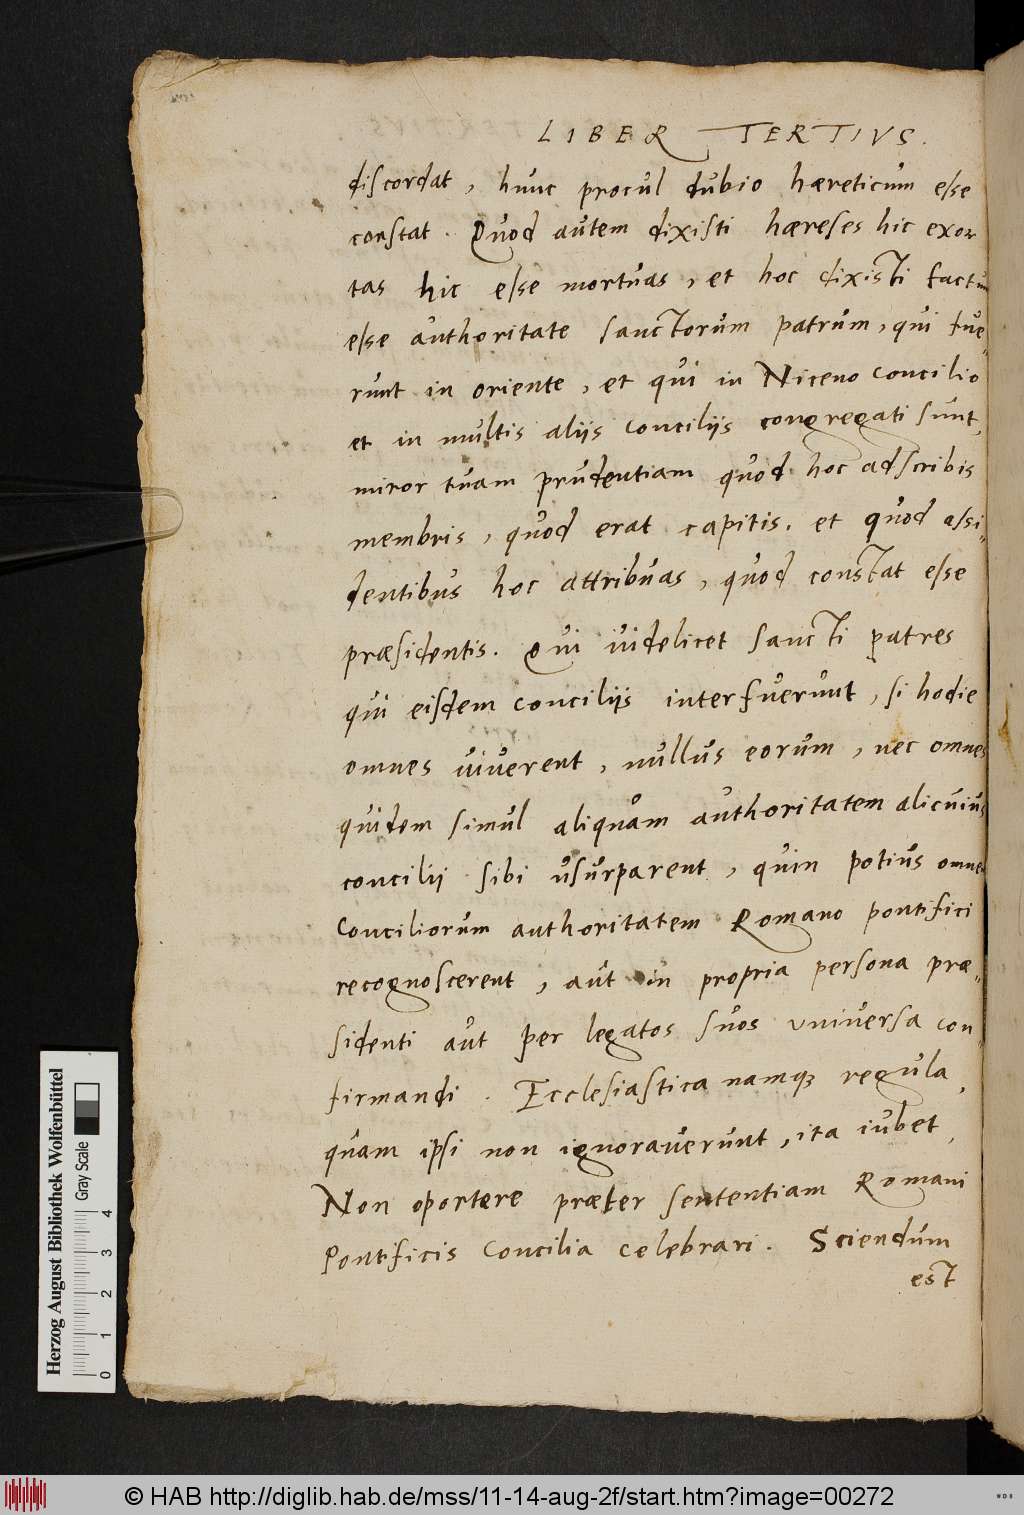 LIBER TERTIVS.
discordat, hunc procul dubio hæreticum esse
constat. Quod autem dixisti hæreses hic exor
tas hic esse mortuas, et hoc dixisti factum
esse authoritate sanctorum patrum, qui fue-
runt in oriente, et qui in Niceno concilio
et in multis aliis conciliis congregati sunt,
miror tuam prudentiam quod hoc adscribis
membris, quod erat capitis. et quod assi-
dentibus hoc attribuas, quod constat esse
præsidentis. Qui videlicet sancti patres
qui eisdem conciliis interfuerunt, si hodie
omnes viverent, nullus eorum, nec omnes
quidem simul aliquam authoritatem alicuius
concilii sibi usurparent, quin potius omnem
Conciliorum authoritatem Romano pontifici
recognoscerent, aut in propria persona præ-
sidenti aut per legatos suos universa con
firmandi. Ecclesiastica namq3 regula,
quam ipsi non ignoraverunt, ita iubet,
Non oportere præter sententiam Romani
Pontificis Concilia celebrari. Sciendum
est
Herzog August Bibliothek Wolfenbüttel
Gray Scale
0 1 2 3 4
© HAB http://diglib.hab.de/mss/11-14-aug-2f/start.htm?image=00272